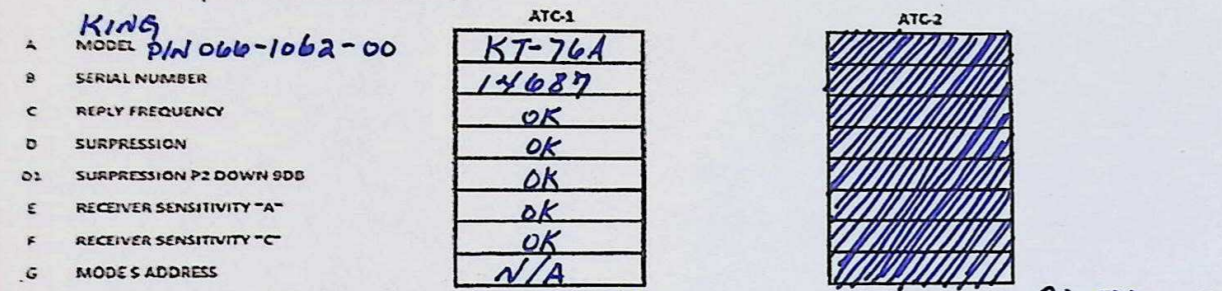 ATC-1 ATC-2
KING
A MODEL P/N 066-1062-00 KT-76A
B SERIAL NUMBER 14687
C REPLY FREQUENCY OK
D SURPRESSION OK
D1 SURPRESSION P2 DOWN 9DB OK
E RECEIVER SENSITIVITY "A" OK
F RECEIVER SENSITIVITY "C" OK
G MODE S ADDRESS N/A